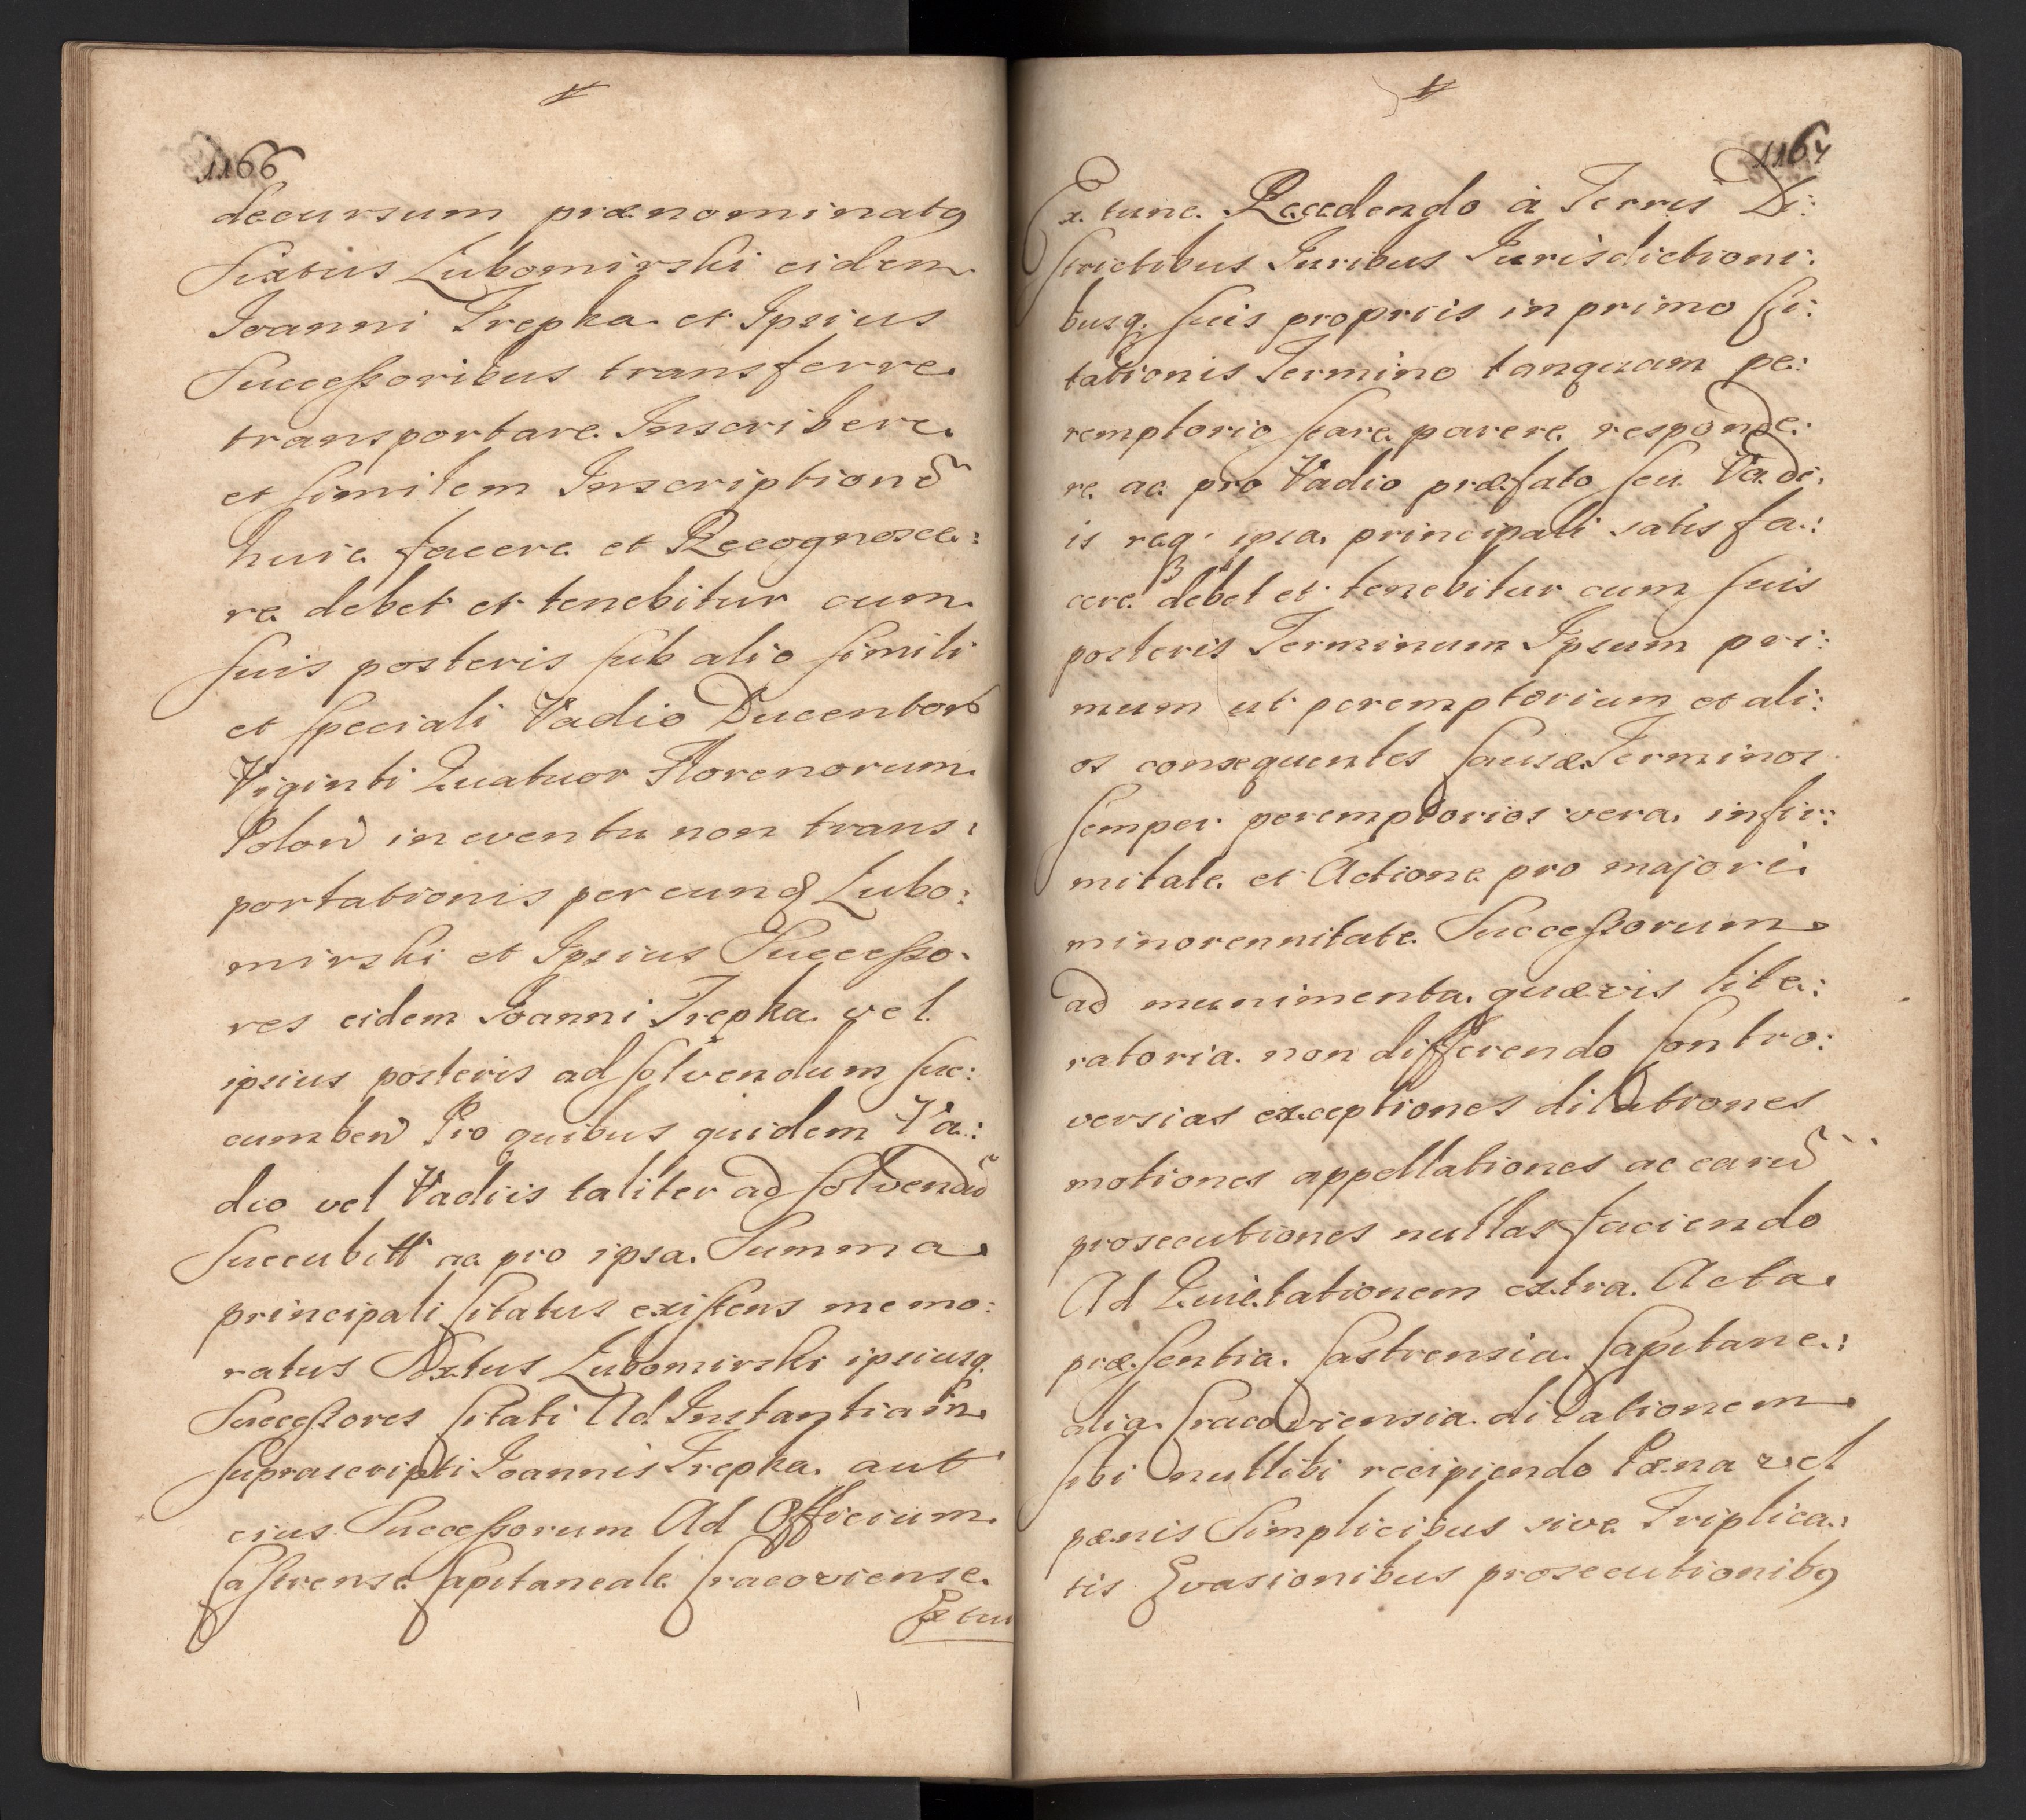 1166
decursum prænominatꝯ
Sixtus Lubomirski eidem
Joanni Trepka et Ipsius
Successoribus transferre
transportare Inscribere
et similem Inscriptionē
huic facere et Recognosce:
re debet et tenebitur cum
suis posteris sub alio simili
et speciali Vadio Ducentor
Viginti Quatuor Florenorum
Polon in eventu non trans:
portationis per eunđ Lubo:
mirski et Ipsius Successo:
res eidem Joanni Trepka vel
ipsius posteris ad solvendum suc:
cumben Pro quibus quidem Va:
dio vel Vadiis taliter ad solvendū
succubitt ac pro ipsa Summa
principali Citatus existens memo:
ratus Sixtus Lubomirski ipsiusq.
Successores Citati Ad Instantiam
suprascripti Joannis Trepka aut
eius Successorum Ad Officium
Castrense Capitaneale Cracoviense
Ex tun
1167
Ex tunc Recedendo à Terris Di:
strictibus Juribus Jurisdictioni:
busq. suis propriis in primo Ci:
tationis Termino tanquam pe:
remptorio stare parere responde:
re ac pro Vadio præfato seu Vadi:
is req. ipsa principali satisfa:
cere debet et tenebitur cum suis
posteris Terminum Ipsum pri:
mum ut peremptorium et ali:
os consequentes Causæ Terminos
semper peremptorios vera infir:
mitate et Actione pro majori
minorennitate Successorum
ad munimenta quævis lite:
ratoria non differendo Contro:
versias exceptiones dilationes
motiones appellationes ac earū
prosecutiones nullas faciendo
Ad Quietationem extra Acta
præsentia Castrensia Capitane:
alia Cracoviensia dilationem
sibi nullibi recipiendo Pæna vel
pænis Simplicibus sive Triplica:
tis Evasionibus prosecutionibꝯ